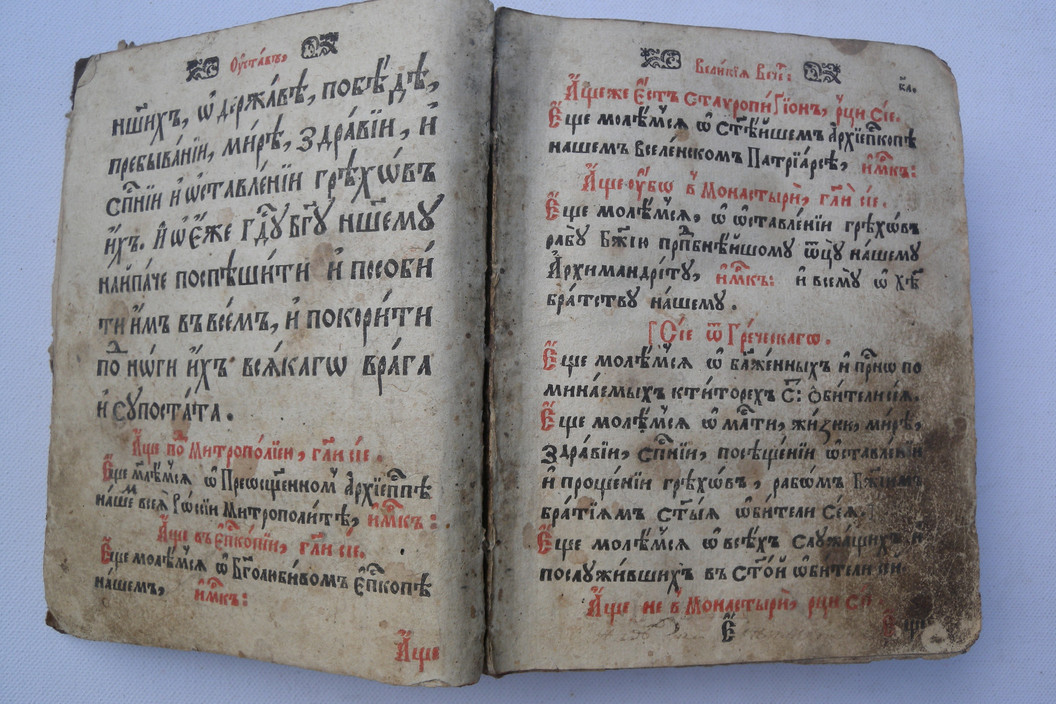 Оуставъ,
нш҃ихъ, ѡ держа́вѣ, побѣ́дѣ,
пребыва́нїи, ми́рѣ, здра́вїи, и҆
сп҃нїи и҆ ѡ҆ставле́нїи грѣхѡ́въ
и҆́хъ. И҆ ѡ҆ є҆́же гдⷭ҇ꙋ бг҃ꙋ нш҃емꙋ
наипа́че поспѣши́ти и҆ пособи́
ти и҆̀мъ въ все́мъ, и҆ покори́ти
по́д но́ги и҆́хъ всѧ́кагѡ врага̀
и҆ сꙋпоста́та.
А҆́ще по Митропо́лїи, гл҃и сїе.
Е҆ще мл҃ѣмсѧ ѡ Преѡсщ҃енном Архїепⷭ҇пѣ
на́шем всеѧ̀ Рѡссїи Митрополи́тѣ, и҆м҃къ:
А҆́ще въ є҆пⷭ҇ко́пїи, гл҃и сїе.
Е҆ще моле́мсѧ ѡ Бг҃олюби́вомъ Е҆пⷭ҇копѣ
на́шемъ, и҆м҃къ:
А҆́ще
Вели́кїѧ Вече:
А҆́ще же є҆́стъ ставропигїонъ, рцы сїе.
Е҆ще моле́мсѧ ѡ ст҃ѣ́йшемъ Архїепⷭ҇копѣ
нашемъ Вселе́нскомъ Патрїа́рсѣ, и҆м҃къ:
А҆́ще ᲂу҆́бѡ в Монастырѝ, гл҃и сїе.
Е҆ще моле́мсѧ, ѡ ѡ҆ставле́нїи грѣхѡ́въ
рабꙋ̀ Бж҃їю прпⷣбнѣ́йшомꙋ ѿц꙽ꙋ на́шемꙋ
Архимандри́тꙋ, и҆м҃къ: и҆ всемꙋ̀ ѡ Хѣ
бра́тствꙋ на́шемꙋ.
Сїе ѿ Гре́ческагѡ.
Е҆ще моле́мсѧ ѡ бл҃же́нныхъ и҆ прⷭ҇нѡ по
мина́емыхъ кти́торехъ ст҃: ѻби́тели сеѧ̀.
Е҆ще моле́мсѧ ѡ мл҃ти, жи́зни, ми́рѣ,
здра́вїи, сп҃нїи, посѣще́нїи ѡ҆ставле́нїи
и҆ проще́нїи грѣхѡ́въ, рабѡ́мъ Бж҃їимъ
бра́тїѧмъ ст҃ы́ѧ ѡ҆би́тели сеѧ̀.
Е҆ще моле́мсѧ ѡ все́хъ слꙋжа́щихъ и҆
послꙋжи́вшихъ въ ст҃ой ѡ҆би́тели сей.
А҆́ще не в Монастырѝ, рцы
Е҆ Е҆ще